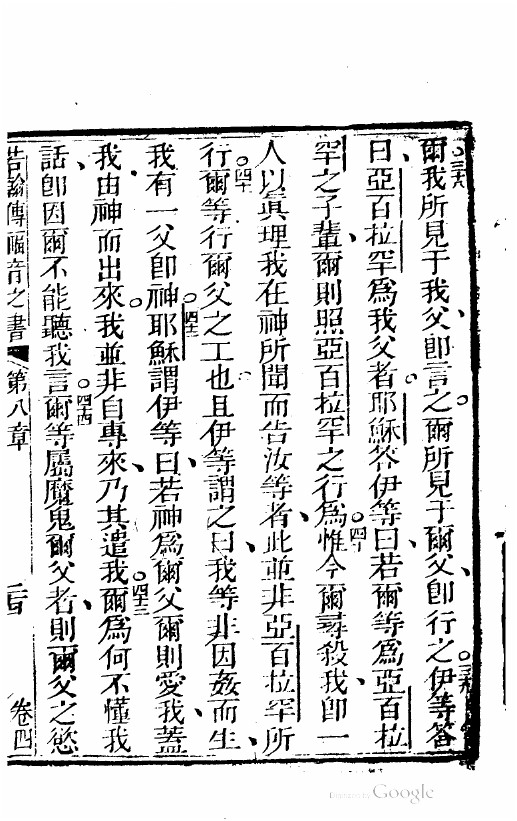 ○三八爾我所見于我父、卽言之。爾所見于爾父、卽行之○三九伊等答
曰、亞百拉罕爲我父者。耶穌答伊等曰、若爾等爲亞百拉
罕之子輩、爾則照亞百拉罕之行爲。○四十惟今爾尋殺我、卽一
人以眞理我在神所聞而告汝等者、此並非亞百拉罕所
行。○四一爾等行爾父之工也。且伊等謂之曰、我等非因姦而生、
我有一父卽神。○四二耶穌謂伊等曰、若神爲爾父、爾則愛我、蓋
我由神而出來。我並非自專來、乃其遣我。○四三爾爲何不懂我
話、卽因爾不能聽我言。○四四爾等屬魔鬼爾父者、則爾父之慾
若翰傳福音之書 第八章 卷四
Digitized by Google